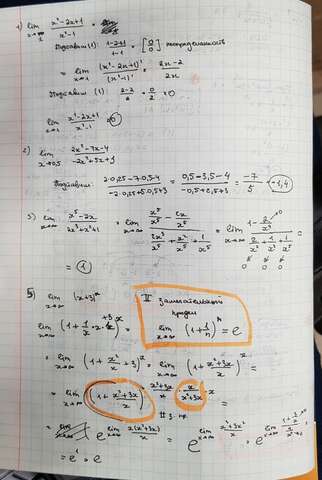 1) lim x→1 x²-2x+1 / x²-1 =
Подставим (1): 1-2+1 / 1-1 = [0/0] неопределенность
= lim x→1 (x²-2x+1)' / (x²-1)' = 2x-2 / 2x
Подставим (1) 2-2 / 2 = 0/2 = 0
lim x→1 x²-2x+1 / x²-1 = 0
2) lim x→0,5 2x²-7x-4 / -2x²+5x+3
Подставим: 2·0,25-7·0,5-4 / -2·0,25+5·0,5+3 = 0,5-3,5-4 / -0,5+2,5+3 = -7/5 = -1,4
3) lim x→∞ x⁵-2x / 2x³+x²+1 = lim x→∞ x⁵/x⁵ - 2x/x⁵ / 2x³/x⁵ + x²/x⁵ + 1/x⁵ = lim x→∞ 1-2/x⁴ / 2/x²+1/x³+1/x⁵ =
0 0 0
= 1
5) lim x→∞ (x+3)ˣ
II замечательный
предел
lim n→∞ (1+1/n)ⁿ = e
= lim x→∞ (1+ x²/x +3)ˣ = lim x→∞ (1+ x²+3x / x)ˣ =
= lim x→∞ (1+ x²+3x / x) x²+3x / x · x / x²+3x · x =
= e¹ = e